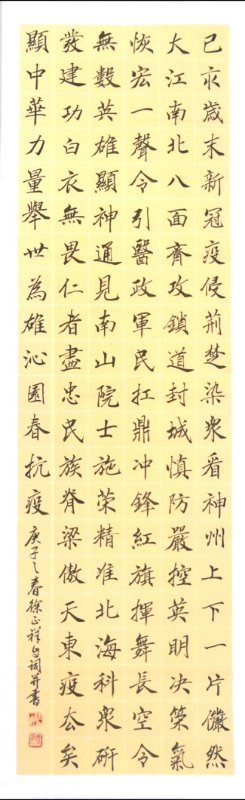 己亥歲末新冠疫侵荊楚染衆看神州上下一片儼然
大江南北八面齊攻鎖道封城慎防嚴控英明決策氣
恢宏一聲令引醫政軍民扛鼎冲鋒紅旗揮舞長空令
無數英雄顯神通見南山院士施策精准北海科衆研
發建功白衣無畏仁者盡忠民族脊梁傲天東疫去矣
顯中華力量舉世為雄沁園春抗疫
庚子之春徐正祥自詞并書